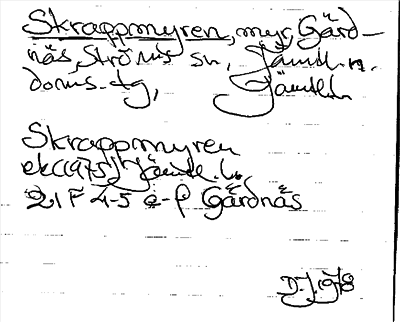 Skrappmyren, myr, Gärd-
näs, Ströms sn, Jämtl. n.
doms. tg, Jämtl.
Skrappmyren
ek (1975) Jämtl. l.
21 F 4-5 e-f Gärdnäs
D.J. 1978